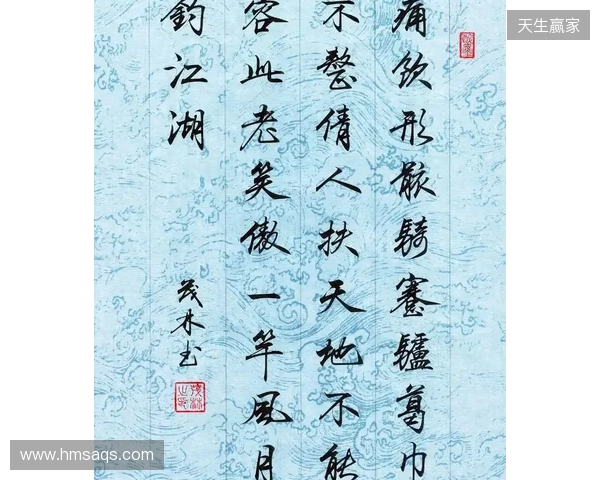 天生赢家
痛飲形骸騎蹇驢葛巾
不整倩人扶天地不能
容此老笑傲一竿風月
釣江湖
茂林书
www.hmsaqs.com